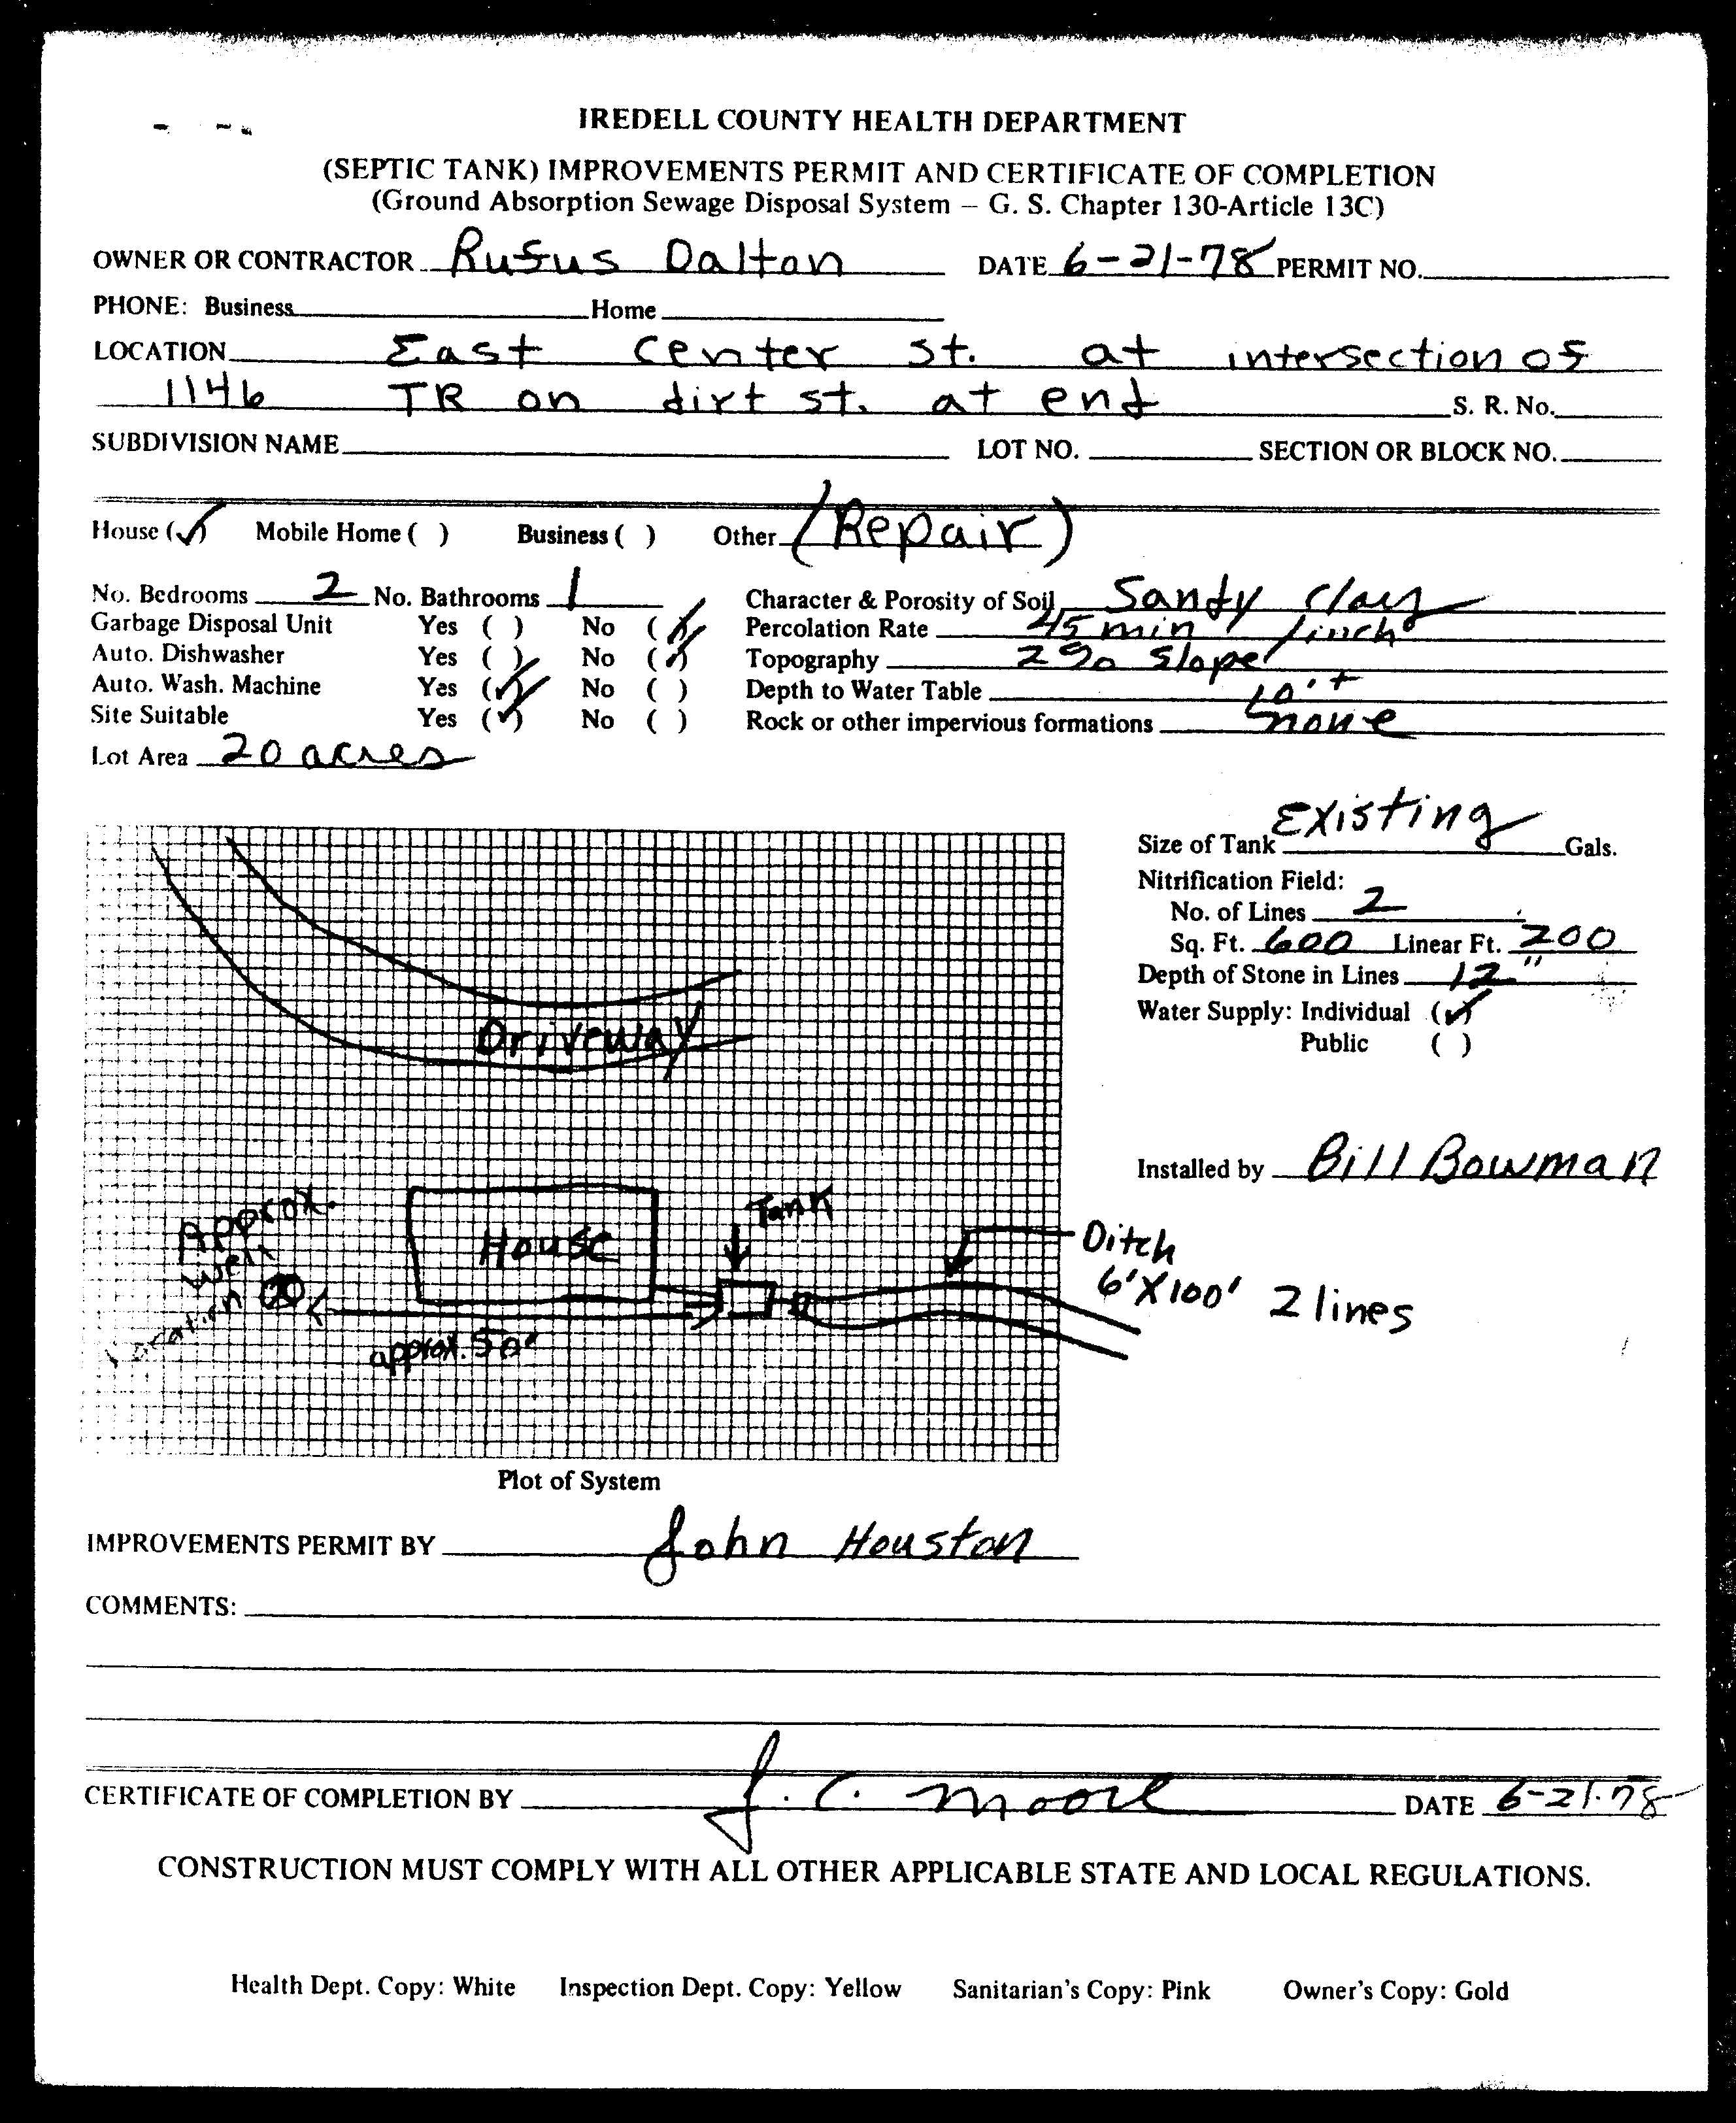 IREDELL COUNTY HEALTH DEPARTMENT
(SEPTIC TANK) IMPROVEMENTS PERMIT AND CERTIFICATE OF COMPLETION
(Ground Absorption Sewage Disposal System – G. S. Chapter 130-Article 13C)
OWNER OR CONTRACTOR Rufus Dalton DATE 6-21-78 PERMIT NO.
PHONE: Business Home
LOCATION East center st. at intersection of
1146 TR on dirt st. at end S. R. No.
SUBDIVISION NAME LOT NO. SECTION OR BLOCK NO.
House (✓) Mobile Home ( ) Business ( ) Other (Repair)
No. Bedrooms 2 No. Bathrooms 1 Character & Porosity of Soil Sandy clay
Garbage Disposal Unit Yes ( ) No (✓) Percolation Rate 45 min / inch
Auto. Dishwasher Yes ( ) No (✓) Topography 2% slope
Auto. Wash. Machine Yes (✓) No ( ) Depth to Water Table 10'+
Site Suitable Yes (✓) No ( ) Rock or other impervious formations none
Lot Area 20 acres
Size of Tank Existing Gals.
Nitrification Field:
No. of Lines 2
Sq. Ft. 600 Linear Ft. 200
Depth of Stone in Lines 12"
Water Supply: Individual (✓)
Public ( )
Driveway
Installed by Bill Bowman
Approx.
Well
Location
House
Tank
Ditch
6'X100' 2 lines
approx. 50'
Plot of System
IMPROVEMENTS PERMIT BY John Houston
COMMENTS:
CERTIFICATE OF COMPLETION BY J. C. Moore DATE 6-21-78
CONSTRUCTION MUST COMPLY WITH ALL OTHER APPLICABLE STATE AND LOCAL REGULATIONS.
Health Dept. Copy: White Inspection Dept. Copy: Yellow Sanitarian's Copy: Pink Owner's Copy: Gold